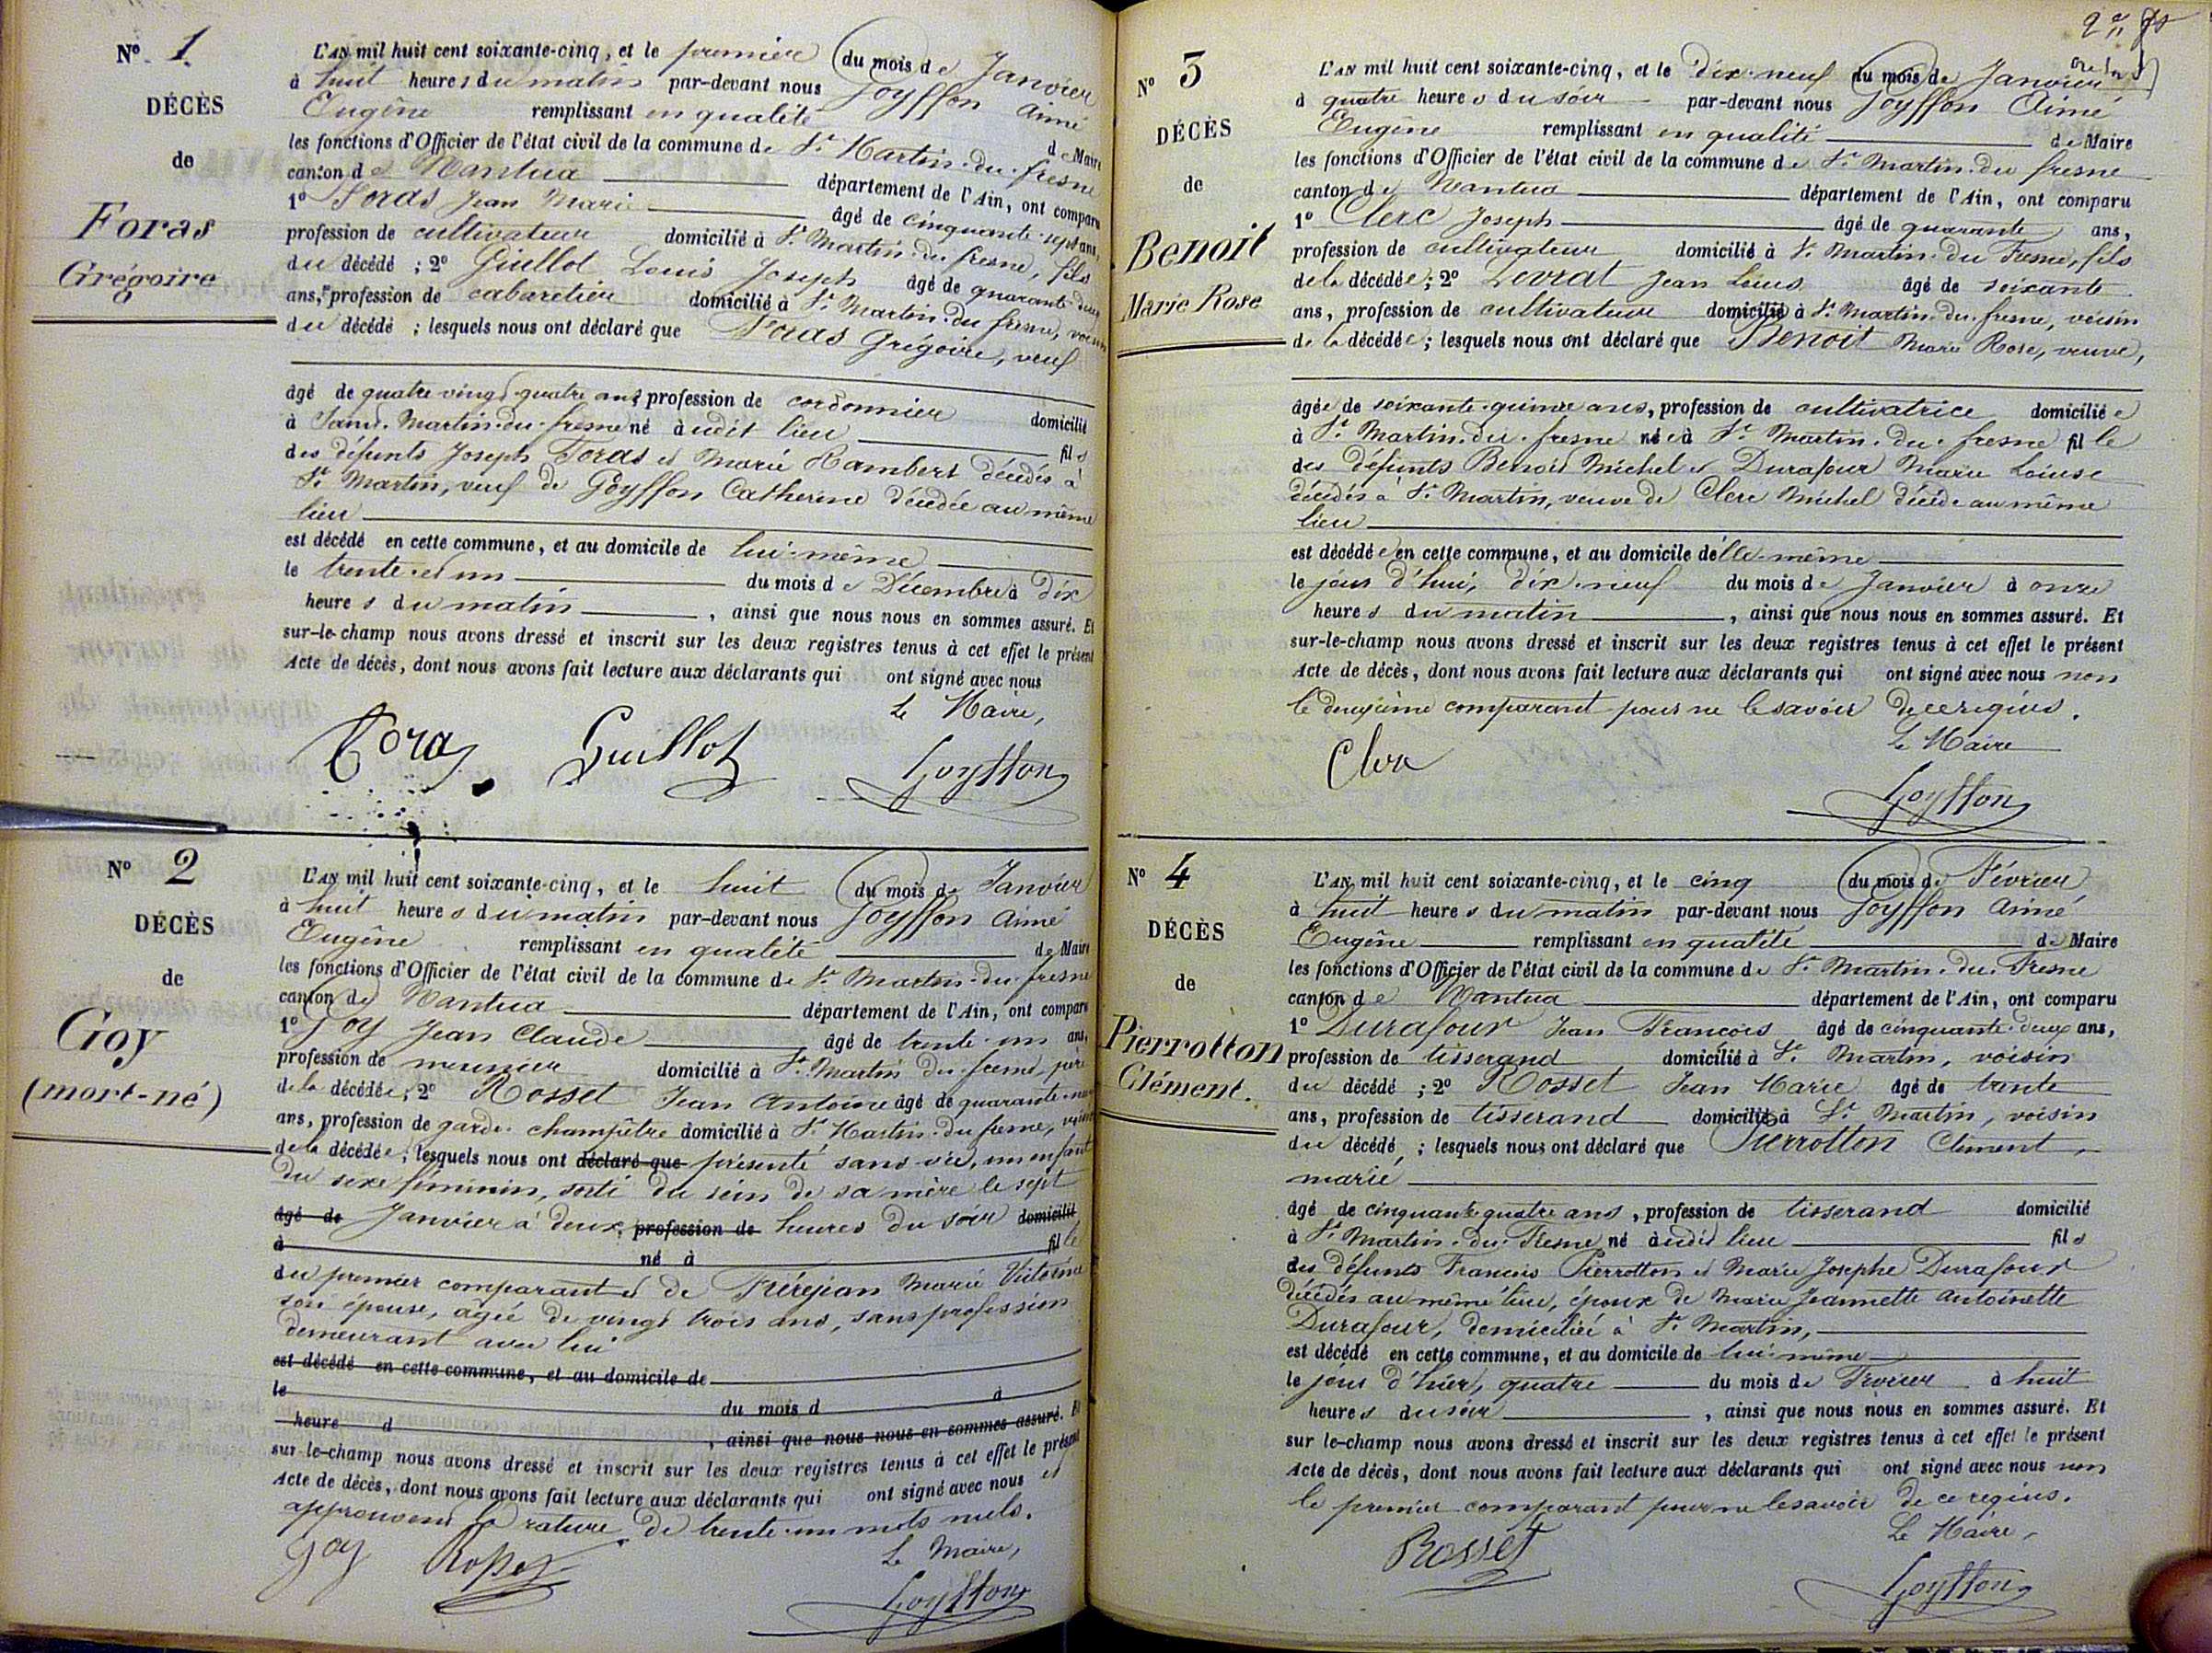 No 1
DÉCÈS
de
Foras
Grégoire
L'AN mil huit cent soixante-cinq, et le premier du mois de Janvier
à huit heures du matin par-devant nous Goyffon Aimé
Eugène remplissant en qualité de Maire
les fonctions d'Officier de l'état civil de la commune de St Martin-du-fresne
canton de Nantua département de l'Ain, ont comparu
1o Foras Jean Marie âgé de cinquante-sept ans,
profession de cultivateur domicilié à St Martin-du-fresne, fils
du décédé ; 2o Guillot Louis Joseph âgé de quarante-deux
ans, profession de cabaretier domicilié à St Martin-du-fresne, voisin
du décédé ; lesquels nous ont déclaré que Foras Grégoire, veuf
âgé de quatre vingt quatre ans profession de cordonnier domicilié
à Saint-Martin-du-fresne né audit lieu fils
des défunts Joseph Foras et Marie Hambert décédés à
St Martin, veuf de Goyffon Catherine décédée au même
lieu
est décédé en cette commune, et au domicile de lui-même
le trente-et-un du mois de Décembre à dix
heures du matin, ainsi que nous nous en sommes assuré. Et
sur-le-champ nous avons dressé et inscrit sur les deux registres tenus à cet effet le présent
Acte de décès, dont nous avons fait lecture aux déclarants qui ont signé avec nous
Le Maire,
Foras Guillot Goyffon
No 2
DÉCÈS
de
Goy
(mort-né)
L'AN mil huit cent soixante-cinq, et le huit du mois de Janvier
à huit heures du matin par-devant nous Goyffon Aimé
Eugène remplissant en qualité de Maire
les fonctions d'Officier de l'état civil de la commune de St Martin-du-fresne
canton de Nantua département de l'Ain, ont comparu
1o Goy Jean Claude âgé de trente-un ans,
profession de meunier domicilié à St Martin du fresne, père
de la décédée ; 2o Rosset Jean Antoine âgé de quarante-neuf
ans, profession de garde-champêtre domicilié à St Martin-du-fresne, voisin
de la décédée ; lesquels nous ont déclaré que présenté sans vie, un enfant
du sexe féminin, sorti du sein de sa mère le sept
âgé de Janvier à deux profession de heures du soir domicilié
à né à fille
du premier comparant et de Frérejean Marie Victorine
son épouse, agée de vingt trois ans, sans profession
demeurant avec lui
est décédé en cette commune, et au domicile de
le du mois d à
heure d , ainsi que nous nous en sommes assuré. Et
sur-le-champ nous avons dressé et inscrit sur les deux registres tenus à cet effet le présent
Acte de décès, dont nous avons fait lecture aux déclarants qui ont signé avec nous et
approuvent la rature de trente-un mots nuls.
Le Maire,
Goy Rosset Goyffon
No 3
DÉCÈS
de
Benoit
Marie Rose
L'AN mil huit cent soixante-cinq, et le dix-neuf du mois de Janvier
à quatre heures du soir par-devant nous Goyffon Aimé
Eugène remplissant en qualité de Maire
les fonctions d'Officier de l'état civil de la commune de St Martin-du fresne
canton de Nantua département de l'Ain, ont comparu
1o Clerc Joseph âgé de quarante ans,
profession de cultivateur domicilié à St Martin-du Fresne, fils
de la décédée ; 2o Levrat Jean Louis âgé de soixante
ans, profession de cultivateur domicilié à St Martin-du-fresne, voisin
de la décédée ; lesquels nous ont déclaré que Benoit Marie Rose, veuve,
âgée de soixante-quinze ans, profession de cultivatrice domiciliée
à St Martin-du-fresne née à St Martin-du-fresne fille
des défunts Benoit Michel et Durafour Marie Louise
décédés à St Martin, veuve de Clerc Michel décédé au même
lieu
est décédée en cette commune, et au domicile d'elle-même
le jour d'hui, dix-neuf du mois de Janvier à onze
heures du matin, ainsi que nous nous en sommes assuré. Et
sur-le-champ nous avons dressé et inscrit sur les deux registres tenus à cet effet le présent
Acte de décès, dont nous avons fait lecture aux déclarants qui ont signé avec nous non
le deuxième comparant pour ne le savoir de ce requis.
Le Maire
Clerc Goyffon
No 4
DÉCÈS
de
Pierrotton
Clément.
L'AN mil huit cent soixante-cinq, et le cinq du mois de Février
à huit heures du matin par-devant nous Goyffon Aimé
Eugène remplissant en qualité de Maire
les fonctions d'Officier de l'état civil de la commune de St Martin-du-Fresne
canton de Nantua département de l'Ain, ont comparu
1o Durafour Jean François âgé de cinquante-deux ans,
profession de tisserand domicilié à St Martin, voisin
du décédé ; 2o Rosset Jean Marie âgé de trente
ans, profession de tisserand domicilié à St Martin, voisin
du décédé ; lesquels nous ont déclaré que Pierrotton Clément,
marié
âgé de cinquante quatre ans, profession de tisserand domicilié
à St Martin-du-Fresne né audit lieu fils
des défunts François Pierrotton et Marie Josephe Durafour
décédés au même lieu, époux de Marie Jeannette Antoinette
Durafour, domiciliée à St Martin,
est décédé en cette commune, et au domicile de lui-même
le jour d'hier, quatre du mois de Février à huit
heures du soir, ainsi que nous nous en sommes assuré. Et
sur le-champ nous avons dressé et inscrit sur les deux registres tenus à cet effet le présent
Acte de décès, dont nous avons fait lecture aux déclarants qui ont signé avec nous non
le premier comparant pour ne le savoir de ce requis.
Le Maire,
Rosset Goyffon